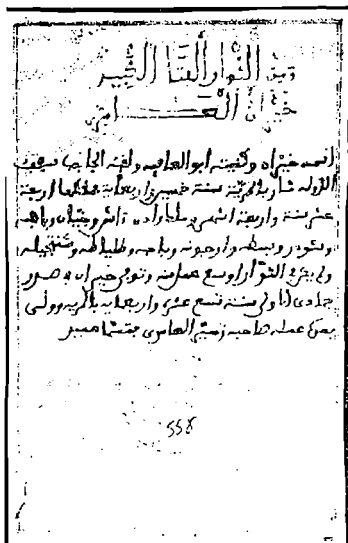 ومن الثوار الفتا الكبير
خيران العامري
اسمه خيران وكنيته ابو العافيه ولقبه الحاجب سيف
الدوله ثار بالمرية سنة خمس واربعماية فملكها اربعة
عشر سنة واربعة اشهر وجيان وباجه
وشوذر وبسطه وارجونه وباجه وطليطله وشنتجيله
ولم الثوار اوسع عملا منه وتوفي خيران في صدر
جمادى الاولى سنة تسع عشر واربعماية بالمريه وولى
عمله صاحبه زهير العامري
558